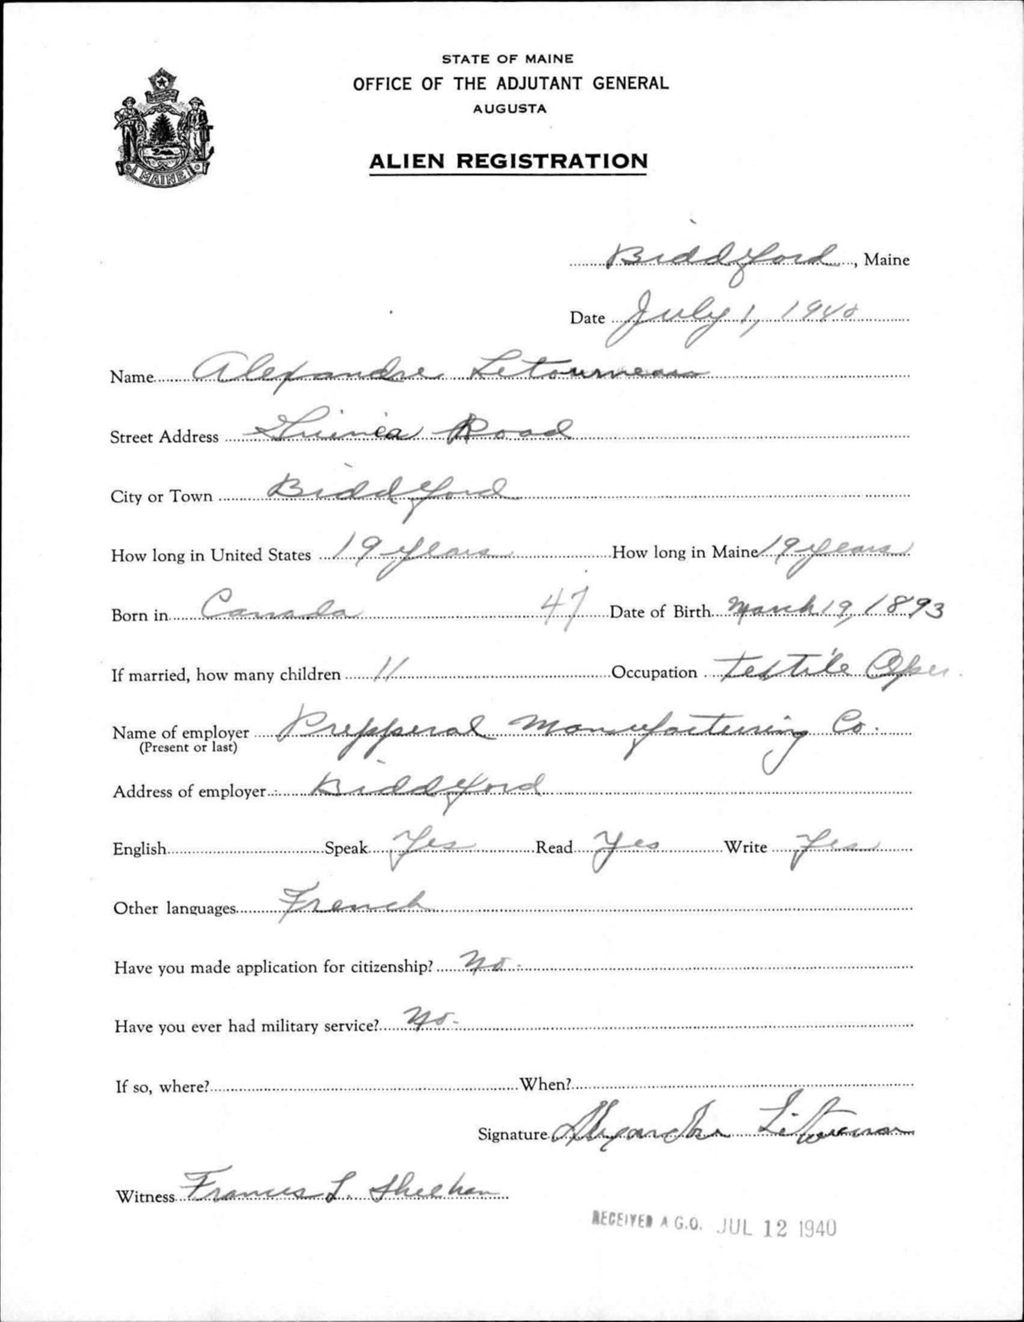 STATE OF MAINE
OFFICE OF THE ADJUTANT GENERAL
AUGUSTA
MAINE
ALIEN REGISTRATION
Biddeford, Maine
Date July 1, 1940
Name Alexandre Letourneau
Street Address Guinea Road
City or Town Biddeford
How long in United States 19 years How long in Maine 19 years
Born in Canada 47 Date of Birth March 19, 1893
If married, how many children 11 Occupation Textile Oper.
Name of employer Pepperal Manufacturing Co.
(Present or last)
Address of employer Biddeford
English Speak Yes Read Yes Write Yes
Other languages French
Have you made application for citizenship? No.
Have you ever had military service? No.
If so, where? When?
Signature Alexandre Letourneau
Witness Francis L. Sheehan
RECEIVED A.G.O. JUL 12 1940